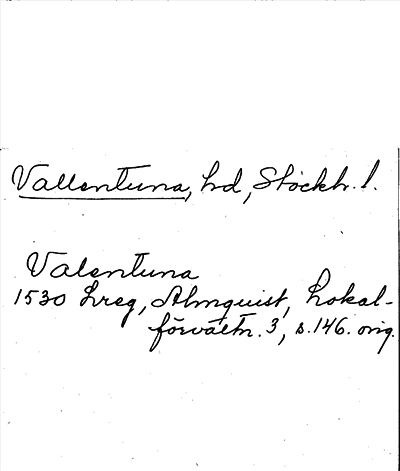 Vallentuna, hd, Stockh. l.
Valentuna
1530 hreg, Almquist, Lokal-
förvaltn. 3, s. 146. orig.